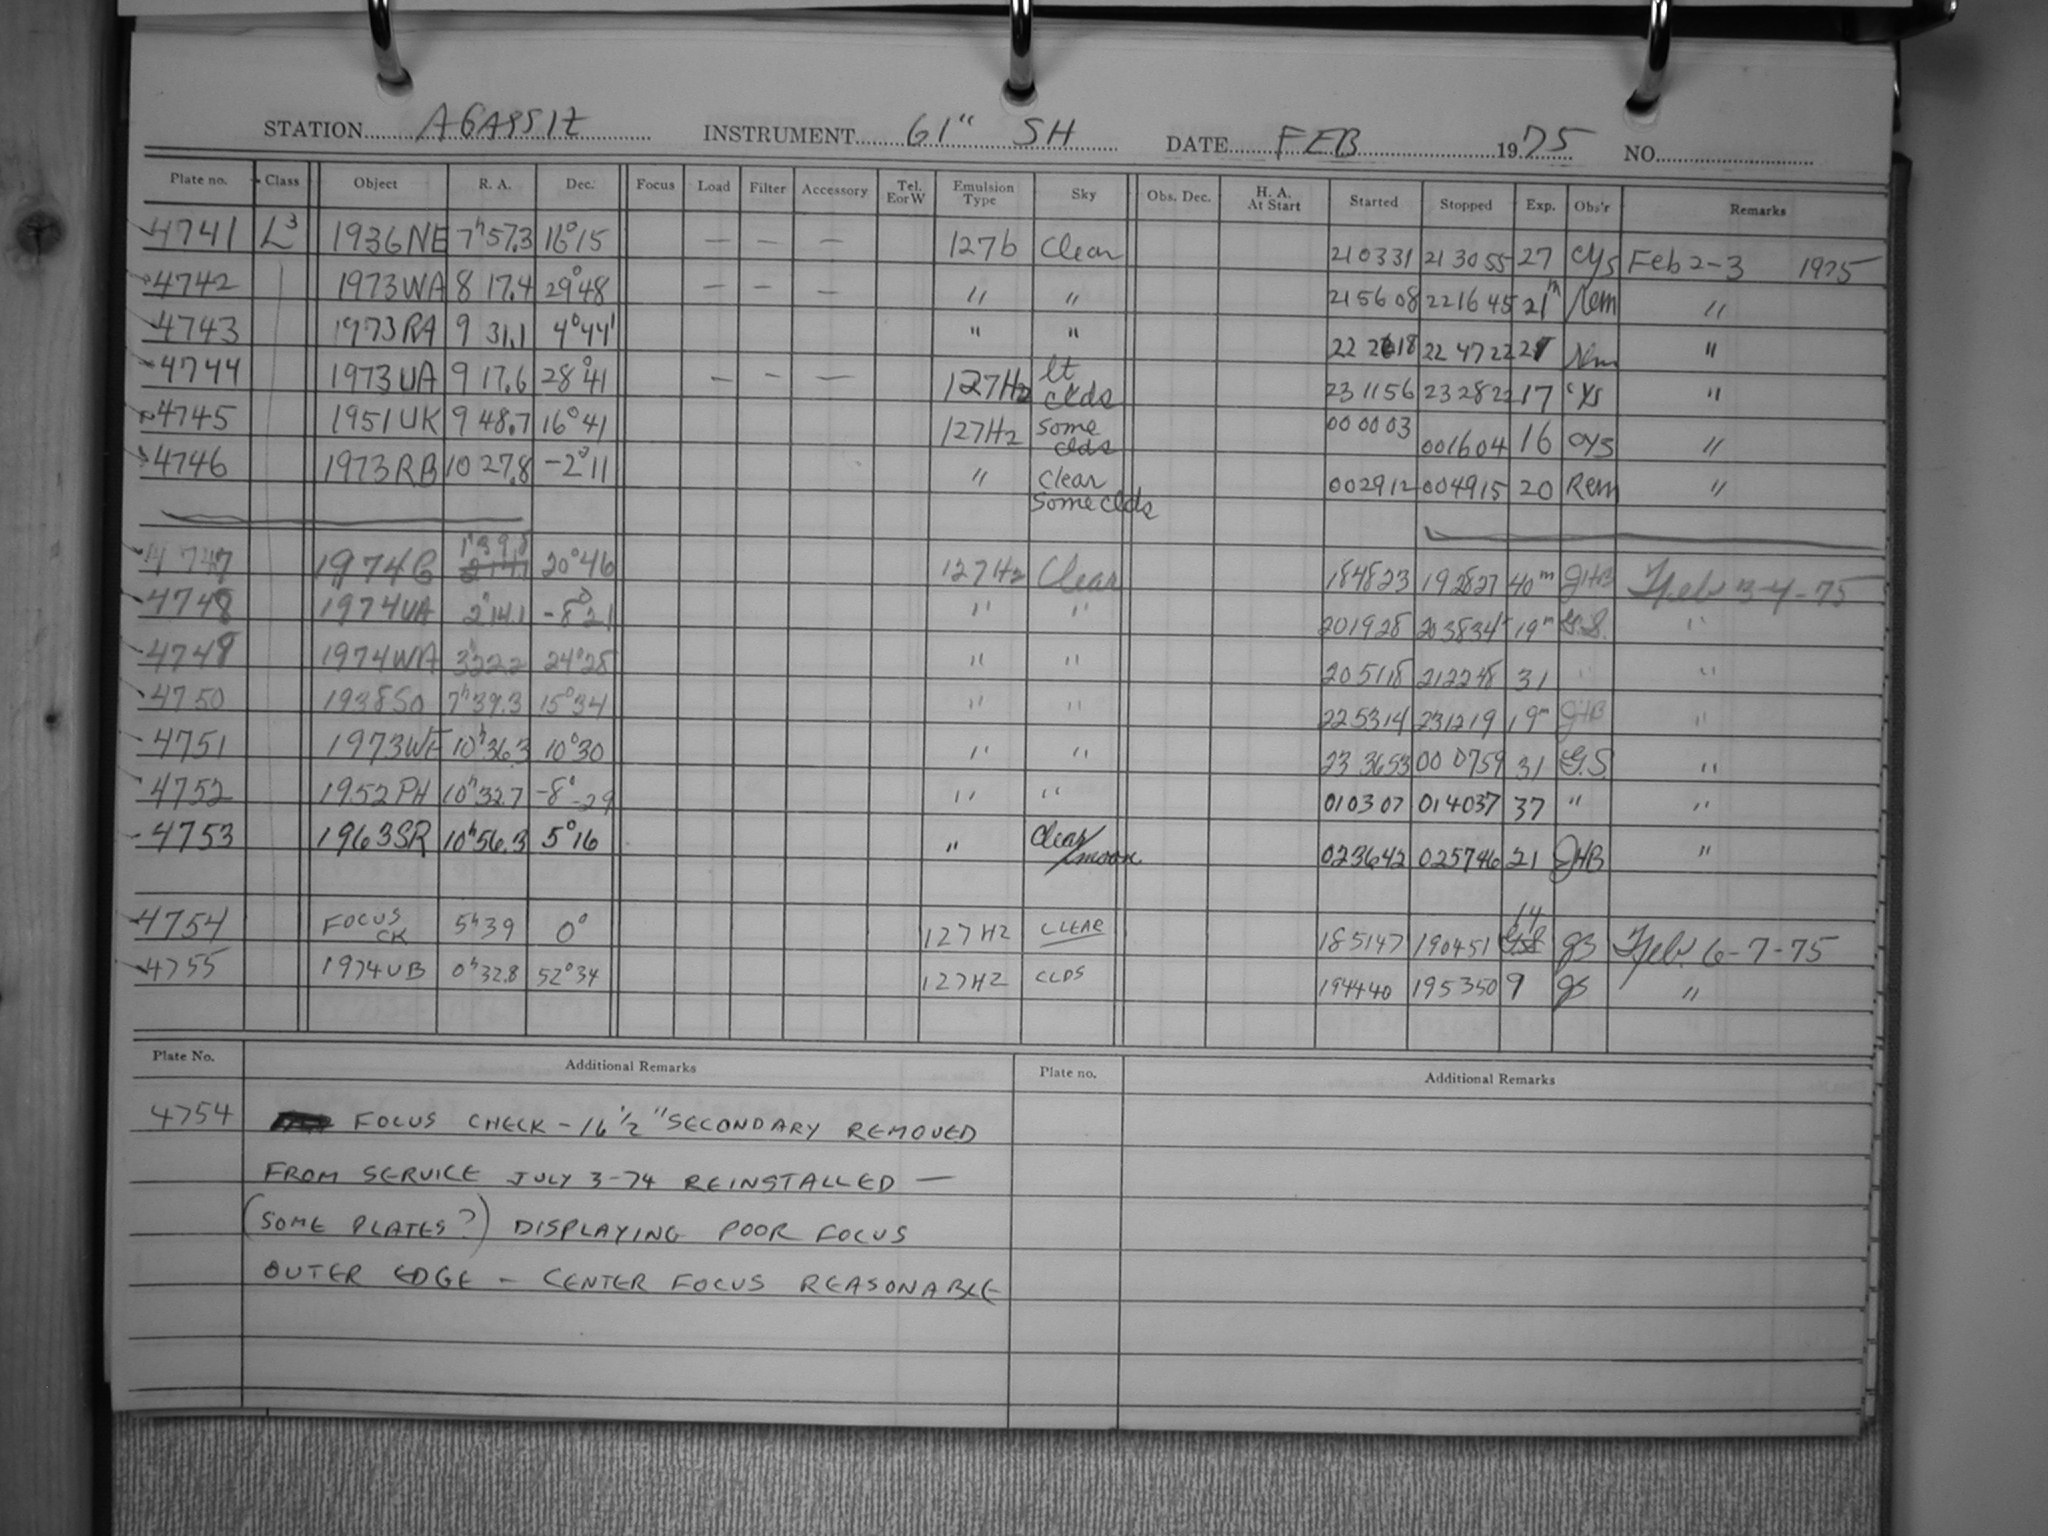 STATION AGASSIZ INSTRUMENT 61" SH DATE FEB 1975 NO.
Plate no. Class Object R. A. Dec. Focus Load Filter Accessory Tel. E or W Emulsion Type Sky Obs. Dec. H. A. At Start Started Stopped Exp. Obs'r Remarks
4741 L3 1936NE 7h57.3 16°15 — — — 127b Clear 210331 213055 27 cys Feb 2-3 1975
4742 1973WA 8 17.4 29°48 — — — " " 215608 221645 21m Rem "
4743 1973RA 9 31.1 4°44' " " 22 2618 22 4722 21 Rem "
4744 1973UA 9 17.6 28°41 — — — 127H2 lt clds 231156 232822 17 cys "
4745 1951UK 9 48.7 16°41 127H2 some clds 000003 001604 16 cys "
4746 1973RB 10 27.8 -2°11 " clear some clds 002912 004915 20 Rem "
4747 1974G 1h39.8 20°46 127H2 Clear 184823 192827 40m JHB Feb 3-4-75
4748 1974UA 2h14.1 -8°21 " " 201928 203834 19m G.S. "
4749 1974WA 3h22.2 24°28 " " 205118 212248 31 " "
4750 1938SO 7h39.3 15°34 " " 225314 231219 19m JHB "
4751 1973WF 10h36.3 10°30 " " 23 3653 00 0759 31 G.S. "
4752 1952PH 10h32.7 -8°-29 " " 010307 014037 37 " "
4753 1963SR 10h56.3 5°16 " Clear/moon 023642 025746 21 JHB "
4754 FOCUS CK 5h39 0° 127H2 CLEAR 185147 190451 14 gs Feb. 6-7-75
4755 1974UB 0h32.8 52°34 127H2 CLDS 194440 195350 9 gs "
Plate No. Additional Remarks Plate no. Additional Remarks
4754 FOCUS CHECK - 16 1/2" SECONDARY REMOVED
FROM SERVICE JULY 3-74 REINSTALLED —
(SOME PLATES?) DISPLAYING POOR FOCUS
OUTER EDGE - CENTER FOCUS REASONABLE